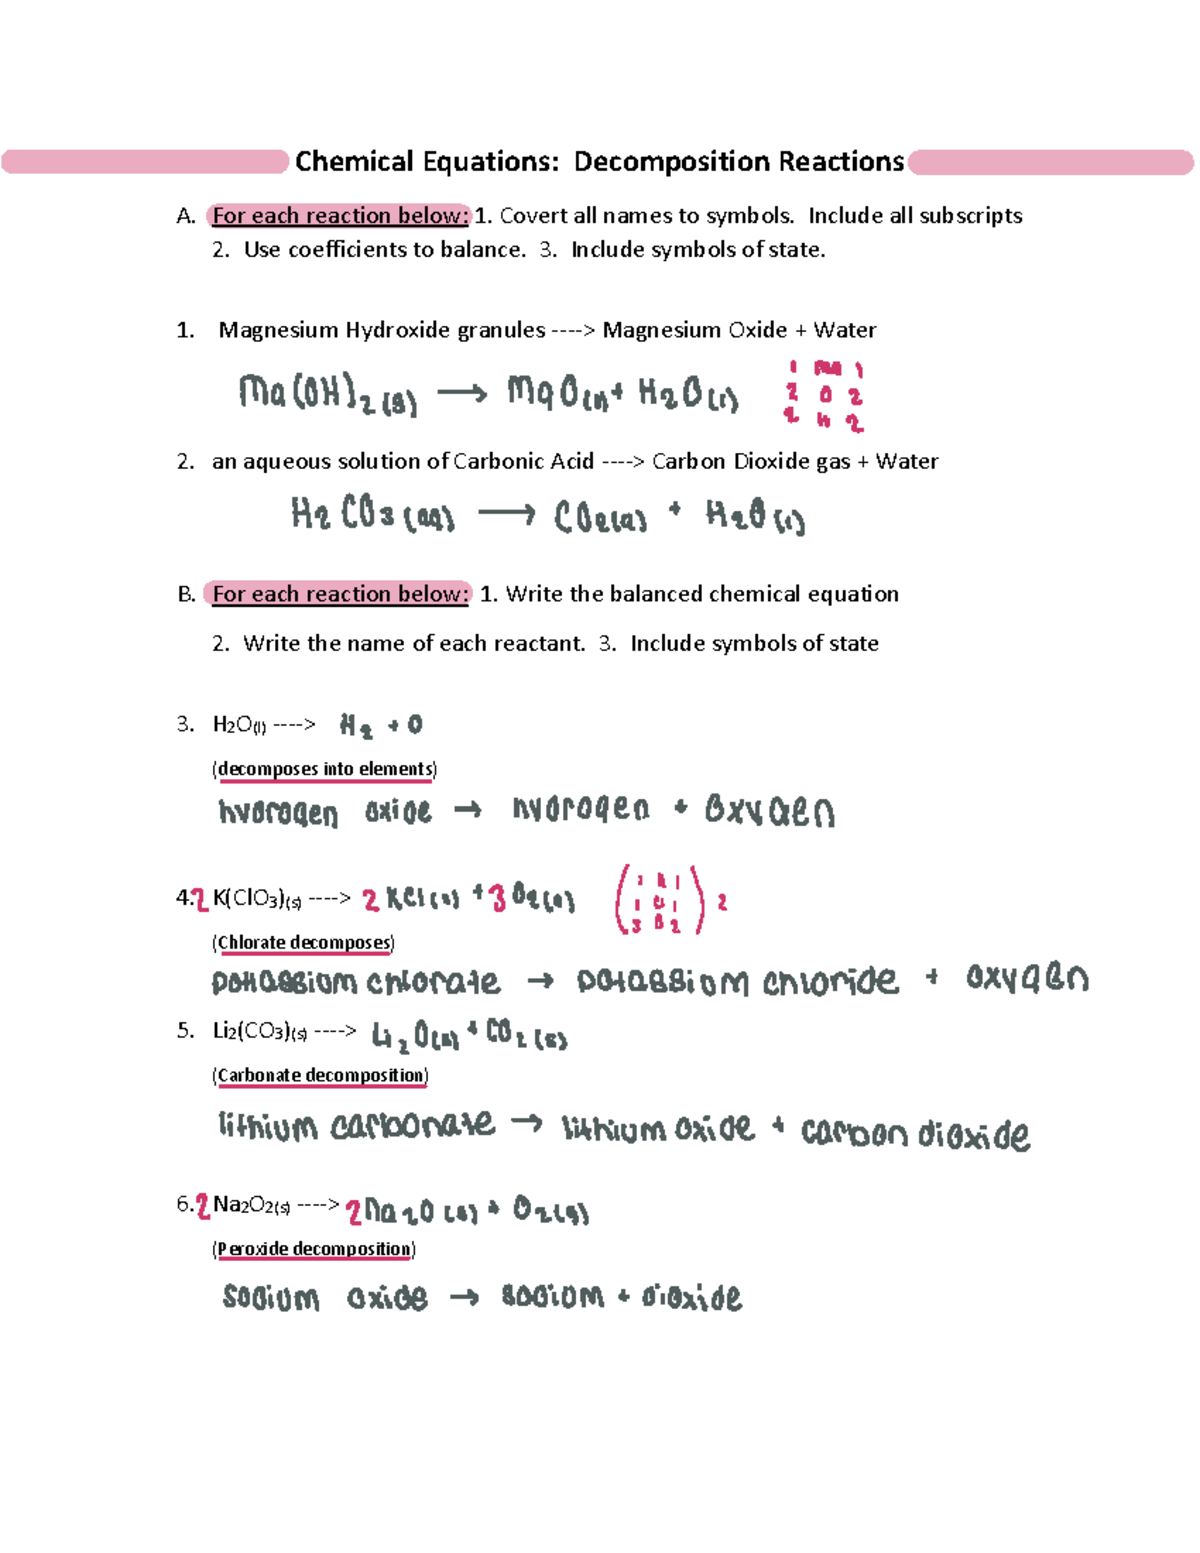 Chemical Equations: Decomposition Reactions
A. For each reaction below: 1. Covert all names to symbols. Include all subscripts
2. Use coefficients to balance. 3. Include symbols of state.
1. Magnesium Hydroxide granules ----> Magnesium Oxide + Water
Mg(OH)2(s) → MgO(s) + H2O(l)
1 Mg 1
2 O 2
2 H 2
2. an aqueous solution of Carbonic Acid ----> Carbon Dioxide gas + Water
H2CO3(aq) → CO2(g) + H2O(l)
B. For each reaction below: 1. Write the balanced chemical equation
2. Write the name of each reactant. 3. Include symbols of state
3. H2O(l) ----> H2 + O
(decomposes into elements)
hydrogen oxide → hydrogen + oxygen
4. 2 K(ClO3)(s) ----> 2 KCl(s) + 3 O2(g)
1 K 1
1 Cl 1
3 O 2
2
(Chlorate decomposes)
potassium chlorate → potassium chloride + oxygen
5. Li2(CO3)(s) ----> Li2O(s) + CO2(s)
(Carbonate decomposition)
lithium carbonate → lithium oxide + carbon dioxide
6. 2 Na2O2(s) ----> 2 Na2O(s) + O2(g)
(Peroxide decomposition)
sodium oxide → sodium + dioxide